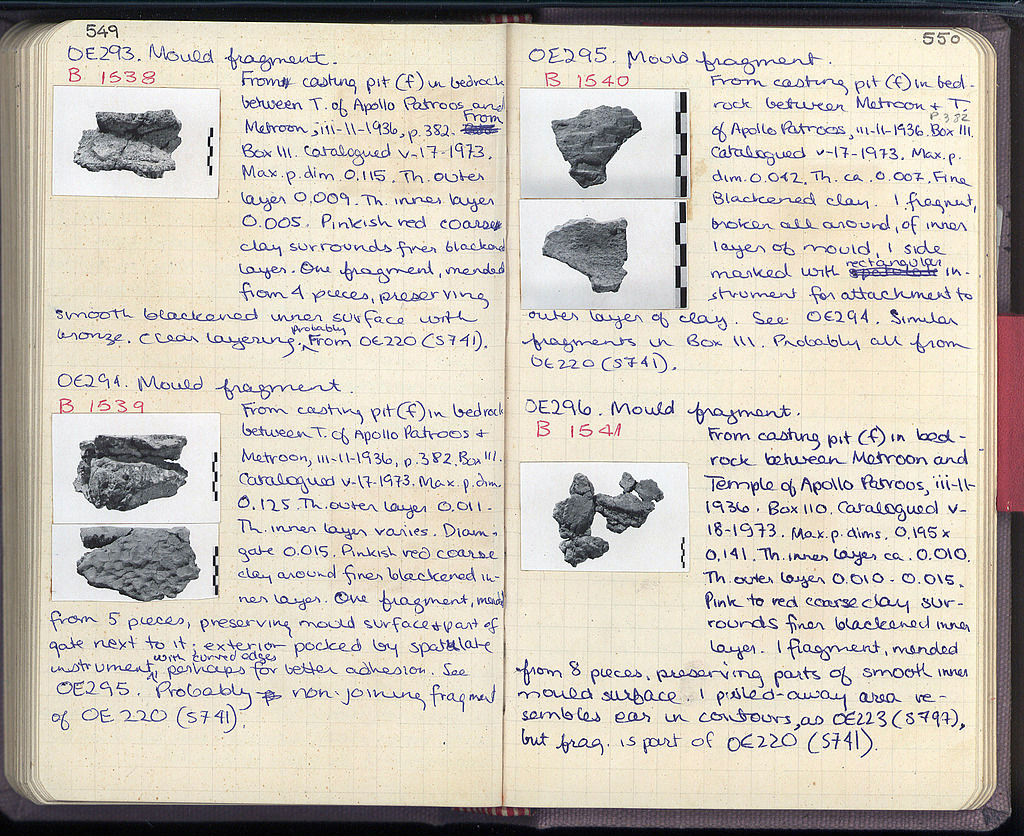 549
OE293. Mould fragment.
B 1538
From casting pit (f) in bedrock
between T. of Apollo Patroos and
Metroon, iii-11-1936, p. 382. From
Box III. Catalogued v-17-1973.
Max. p. dim. 0.115. Th. outer
layer 0.009. Th. inner layer
0.005. Pinkish red coarse
clay surrounds finer blackened
layer. One fragment, mended
from 4 pieces, preserving
smooth blackened inner surface with
bronze. Clear layering. Probably From OE220 (S741).
OE294. Mould fragment.
B 1539
From casting pit (f) in bedrock
between T. of Apollo Patroos +
Metroon, iii-11-1936, p. 382. Box III.
Catalogued v-17-1973. Max. p. dim.
0.125. Th. outer layer 0.011.
Th. inner layer varies. Diam.
gate 0.015. Pinkish red coarse
clay around finer blackened in-
ner layer. One fragment, mended
from 5 pieces, preserving mould surface + part of
gate next to it; exterior pocked by spatulate
instrument with curved edges, perhaps for better adhesion. See
OE295. Probably non-joining fragment
of OE220 (S741).
550
OE295. Mould fragment.
B 1540
From casting pit (f) in bed-
rock between Metroon + T.
p. 382
of Apollo Patroos, iii-11-1936. Box III.
Catalogued v-17-1973. Max. p.
dim. 0.042. Th. ca. 0.007. Fine
Blackened clay. 1 fragment,
broken all around, of inner
layer of mould, 1 side
marked with rectangular in-
strument for attachment to
outer layer of clay. See OE294. Similar
fragments in Box III. Probably all from
OE220 (S741).
OE296. Mould fragment.
B 1541
From casting pit (f) in bed-
rock between Metroon and
Temple of Apollo Patroos, iii-11-
1936. Box 110. Catalogued v-
18-1973. Max. p. dims. 0.195 x
0.141. Th. inner layer ca. 0.010.
Th. outer layer 0.010 - 0.015.
Pink to red coarse clay sur-
rounds finer blackened inner
layer. 1 fragment, mended
from 8 pieces, preserving parts of smooth inner
mould surface. 1 pulled-away area re-
sembles ear in contours, as OE223 (S797),
but frag. is part of OE220 (S741).